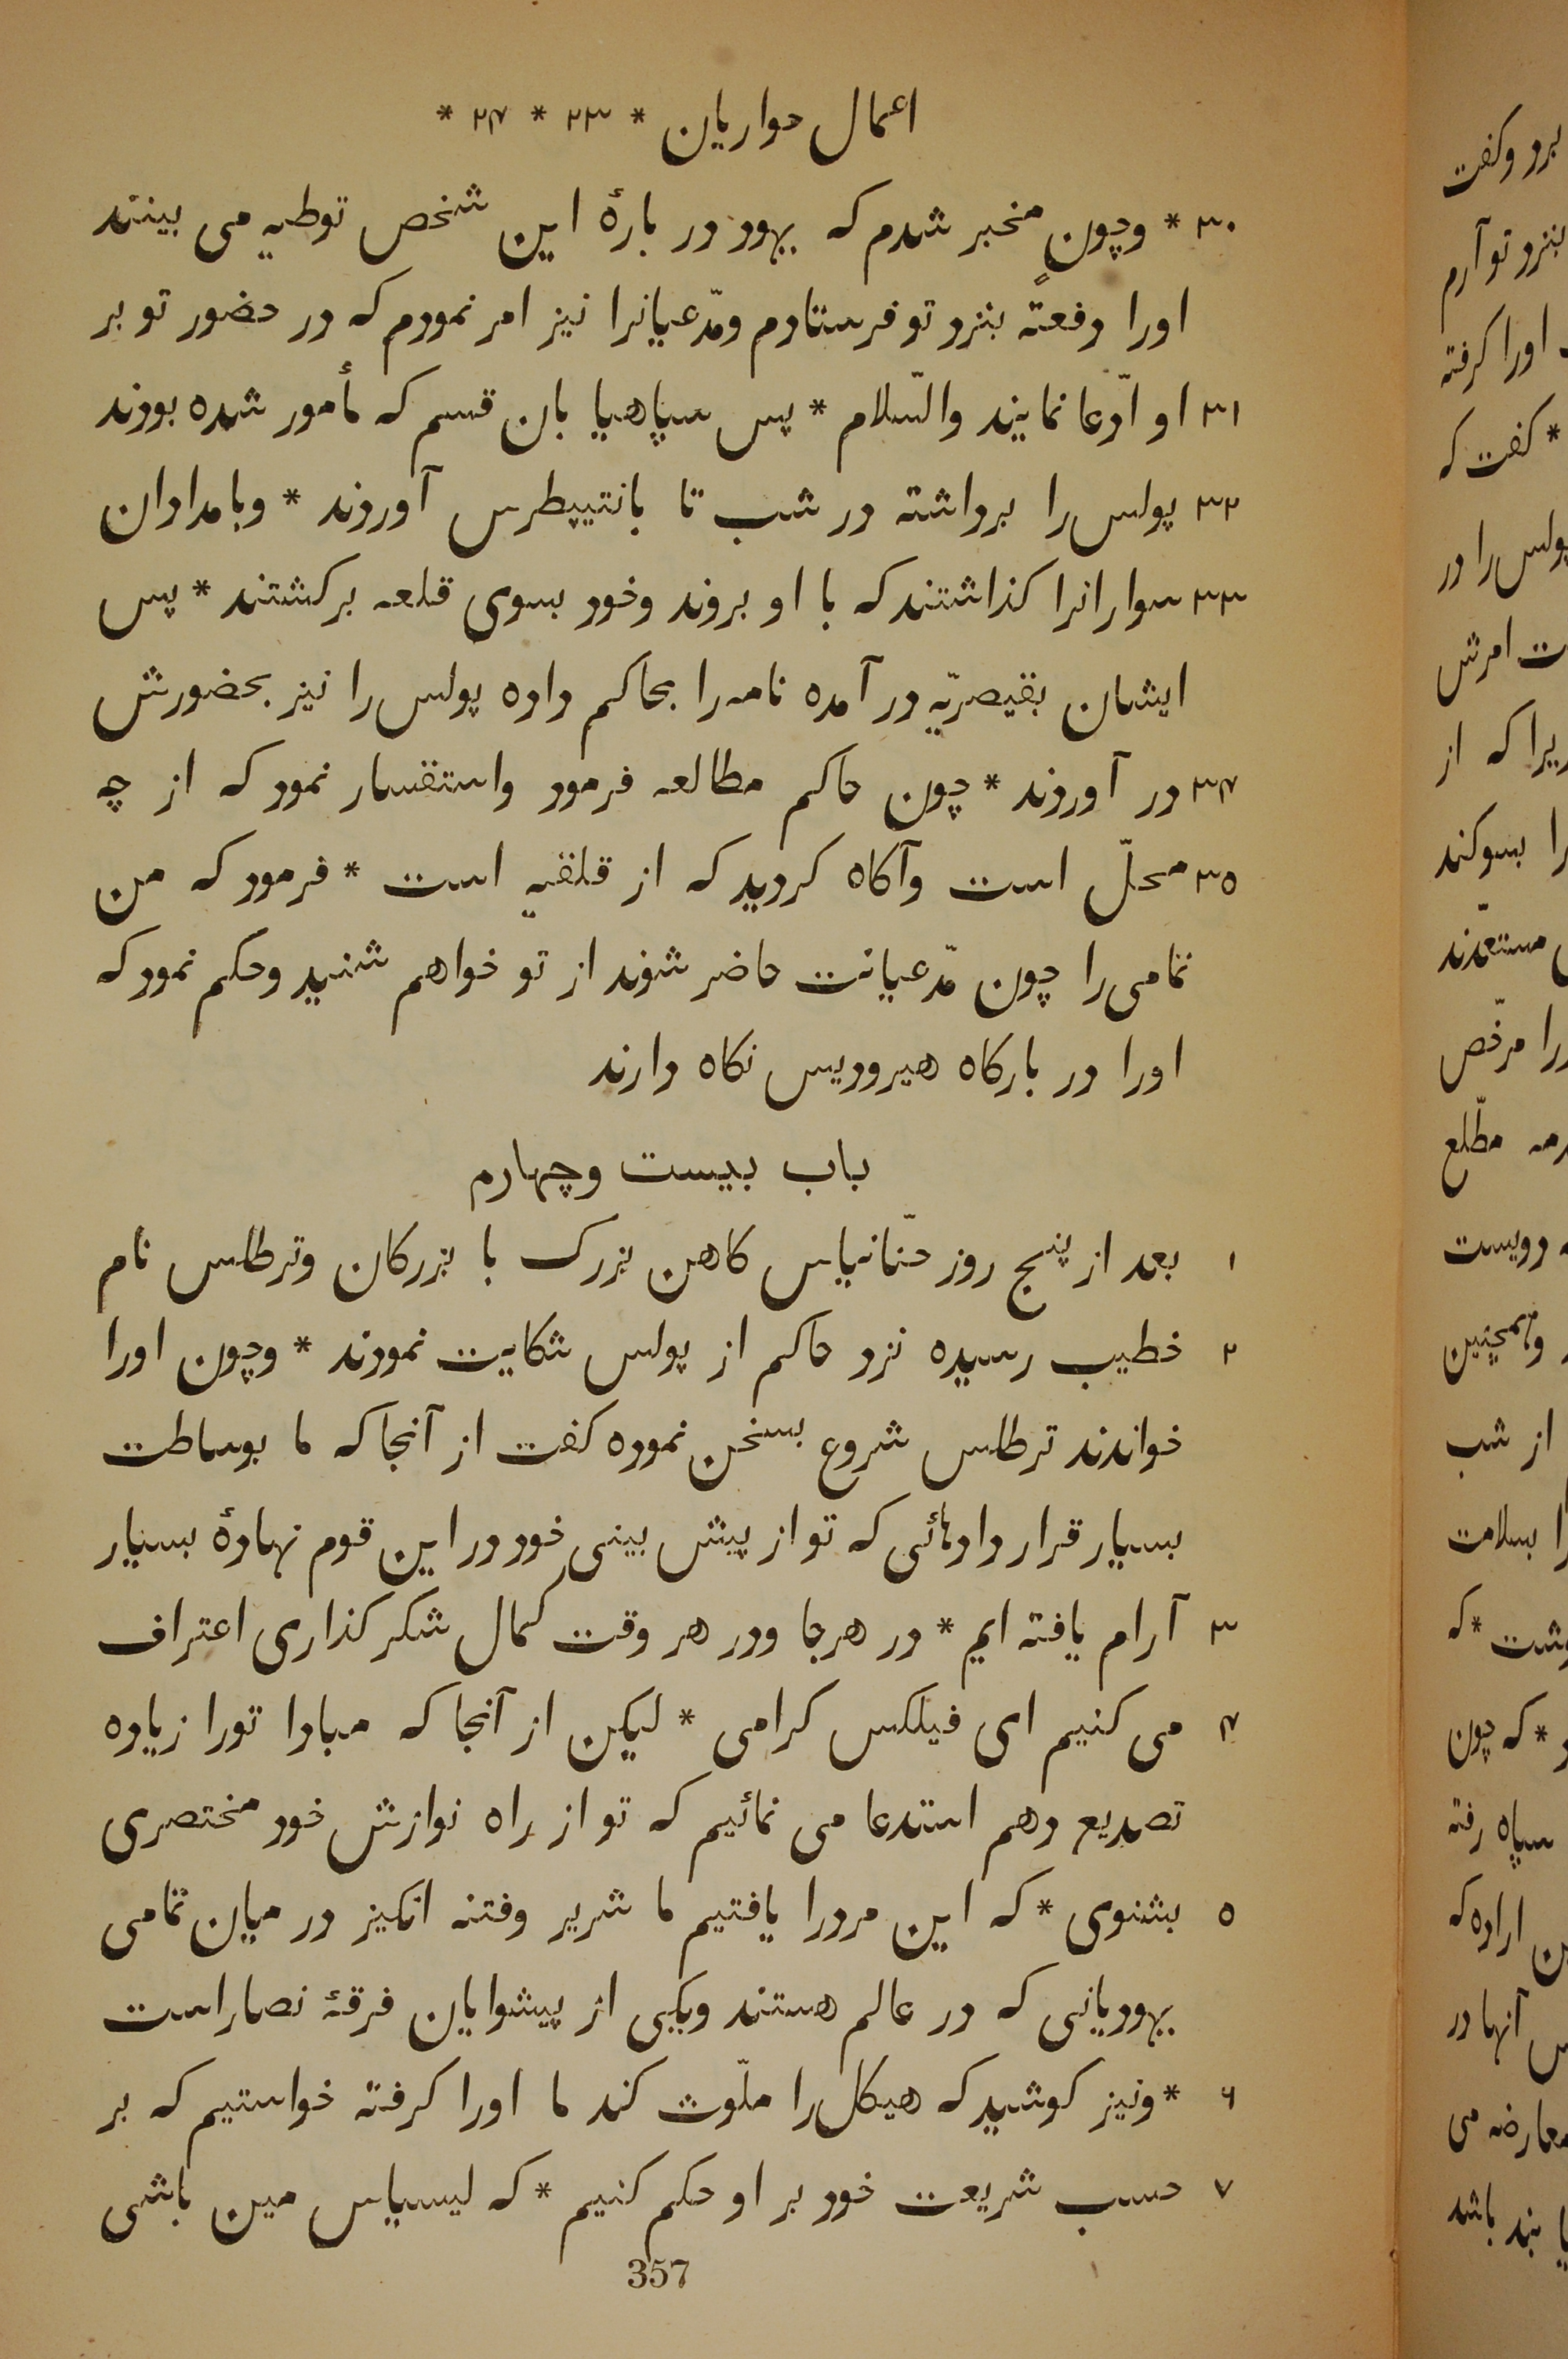 اعمال حواریان * ۲۳ * ۲۴ *
۳۰ * وچون مخبر شدم که یهود در بارۀ این شخص توطیه می بینند
اورا دفعتهً بنزد تو فرستادم ومدّعیانرا نیز امر نمودم که در حضور تو بر
۳۱ او ادّعا نمایند والسّلام * پس سپاهیا بان قسم که مأمور شده بودند
۳۲ پولس را برداشته در شب تا بانتیپطرس آوردند * وبامدادان
۳۳ سوارانرا کذاشتند که با او بروند وخود بسوی قلعه برکشتند * پس
ایشان بقیصریّه در آمده نامه را بحاکم داده پولس را نیز بحضورش
۳۴ در آوردند * چون حاکم مطالعه فرمود واستفسار نمود که از چه
۳۵ محلّ است وآکاه کردید که از قلقیه است * فرمود که من
تمامی را چون مدّعیانت حاضر شوند از تو خواهم شنید وحکم نمود که
اورا در بارکاه هیرودیس نکاه دارند
باب بیست وچهارم
۱ بعد از پنج روز حنّانیاس کاهن بزرک با بزرکان وترطلس نام
۲ خطیب رسیده نزد حاکم از پولس شکایت نمودند * وچون اورا
خواندند ترطلس شروع بسخن نموده کفت از آنجا که ما بوساطت
بسیار قرار دادهائی که تو از پیش بینی خود در این قوم نهادۀ بسیار
۳ آرام یافته ایم * در هرجا ودر هر وقت کمال شکر کذاری اعتراف
۴ می کنیم ای فیلکس کرامی * لیکن از آنجا که مبادا تورا زیاده
تصدیع دهم استدعا می نمائیم که تو از راه نوازش خود مختصری
۵ بشنوی * که این مردرا یافتیم ما شریر وفتنه انکیز در میان تمامی
یهودیانی که در عالم هستند ویکی از پیشوایان فرقۀ نصاراست
۶ * ونیز کوشید که هیکل را ملّوث کند ما اورا کرفته خواستیم که بر
۷ حسب شریعت خود بر او حکم کنیم * که لیسیاس مین باشی
357
برد وکفت
بنزد تو آرم
اورا کرفته
* کفت که
پولس را در
امرش
که از
را بسوکند
مستعدّند
را مرخّص
مطّلع
دویست
وهمچنین
از شب
بسلامت
* که
* که چون
سپاه رفته
اراده که
آنها در
معارضه می
بند باشد